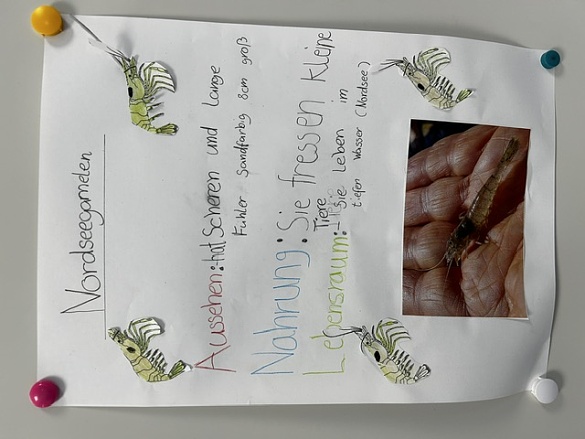 Nordseegarnelen
Aussehen: hat Scheren und lange
Fühler Sandfarbig 8cm groß
Nahrung: Sie fressen kleine
Tiere
Lebensraum: Sie leben im
tiefen Wasser (Nordsee)